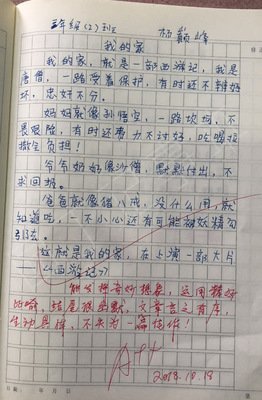 三年级(2)班 杨颖峰
我的家
我的家,就是一部西游记,我是
唐僧,一路受着保护,有时还不辨好
坏,忠奸不分。
妈妈就像孙悟空,一路坎坷,不
畏艰险,有时还费力不讨好,吃喝拉
撒全负担!
爷爷奶奶像沙僧,默默付出,不
求回报。
爸爸就像猪八戒,没什么用,就
知道吃,一不小心还有可能被妖精勾
引去。
这就是我的家,在上演一部大片
——《西游记》
能发挥奇妙想象,运用
比喻,结尾很幽默,文章言之有序,
生动具体,不失为一篇佳作!
A++
2018.10.19